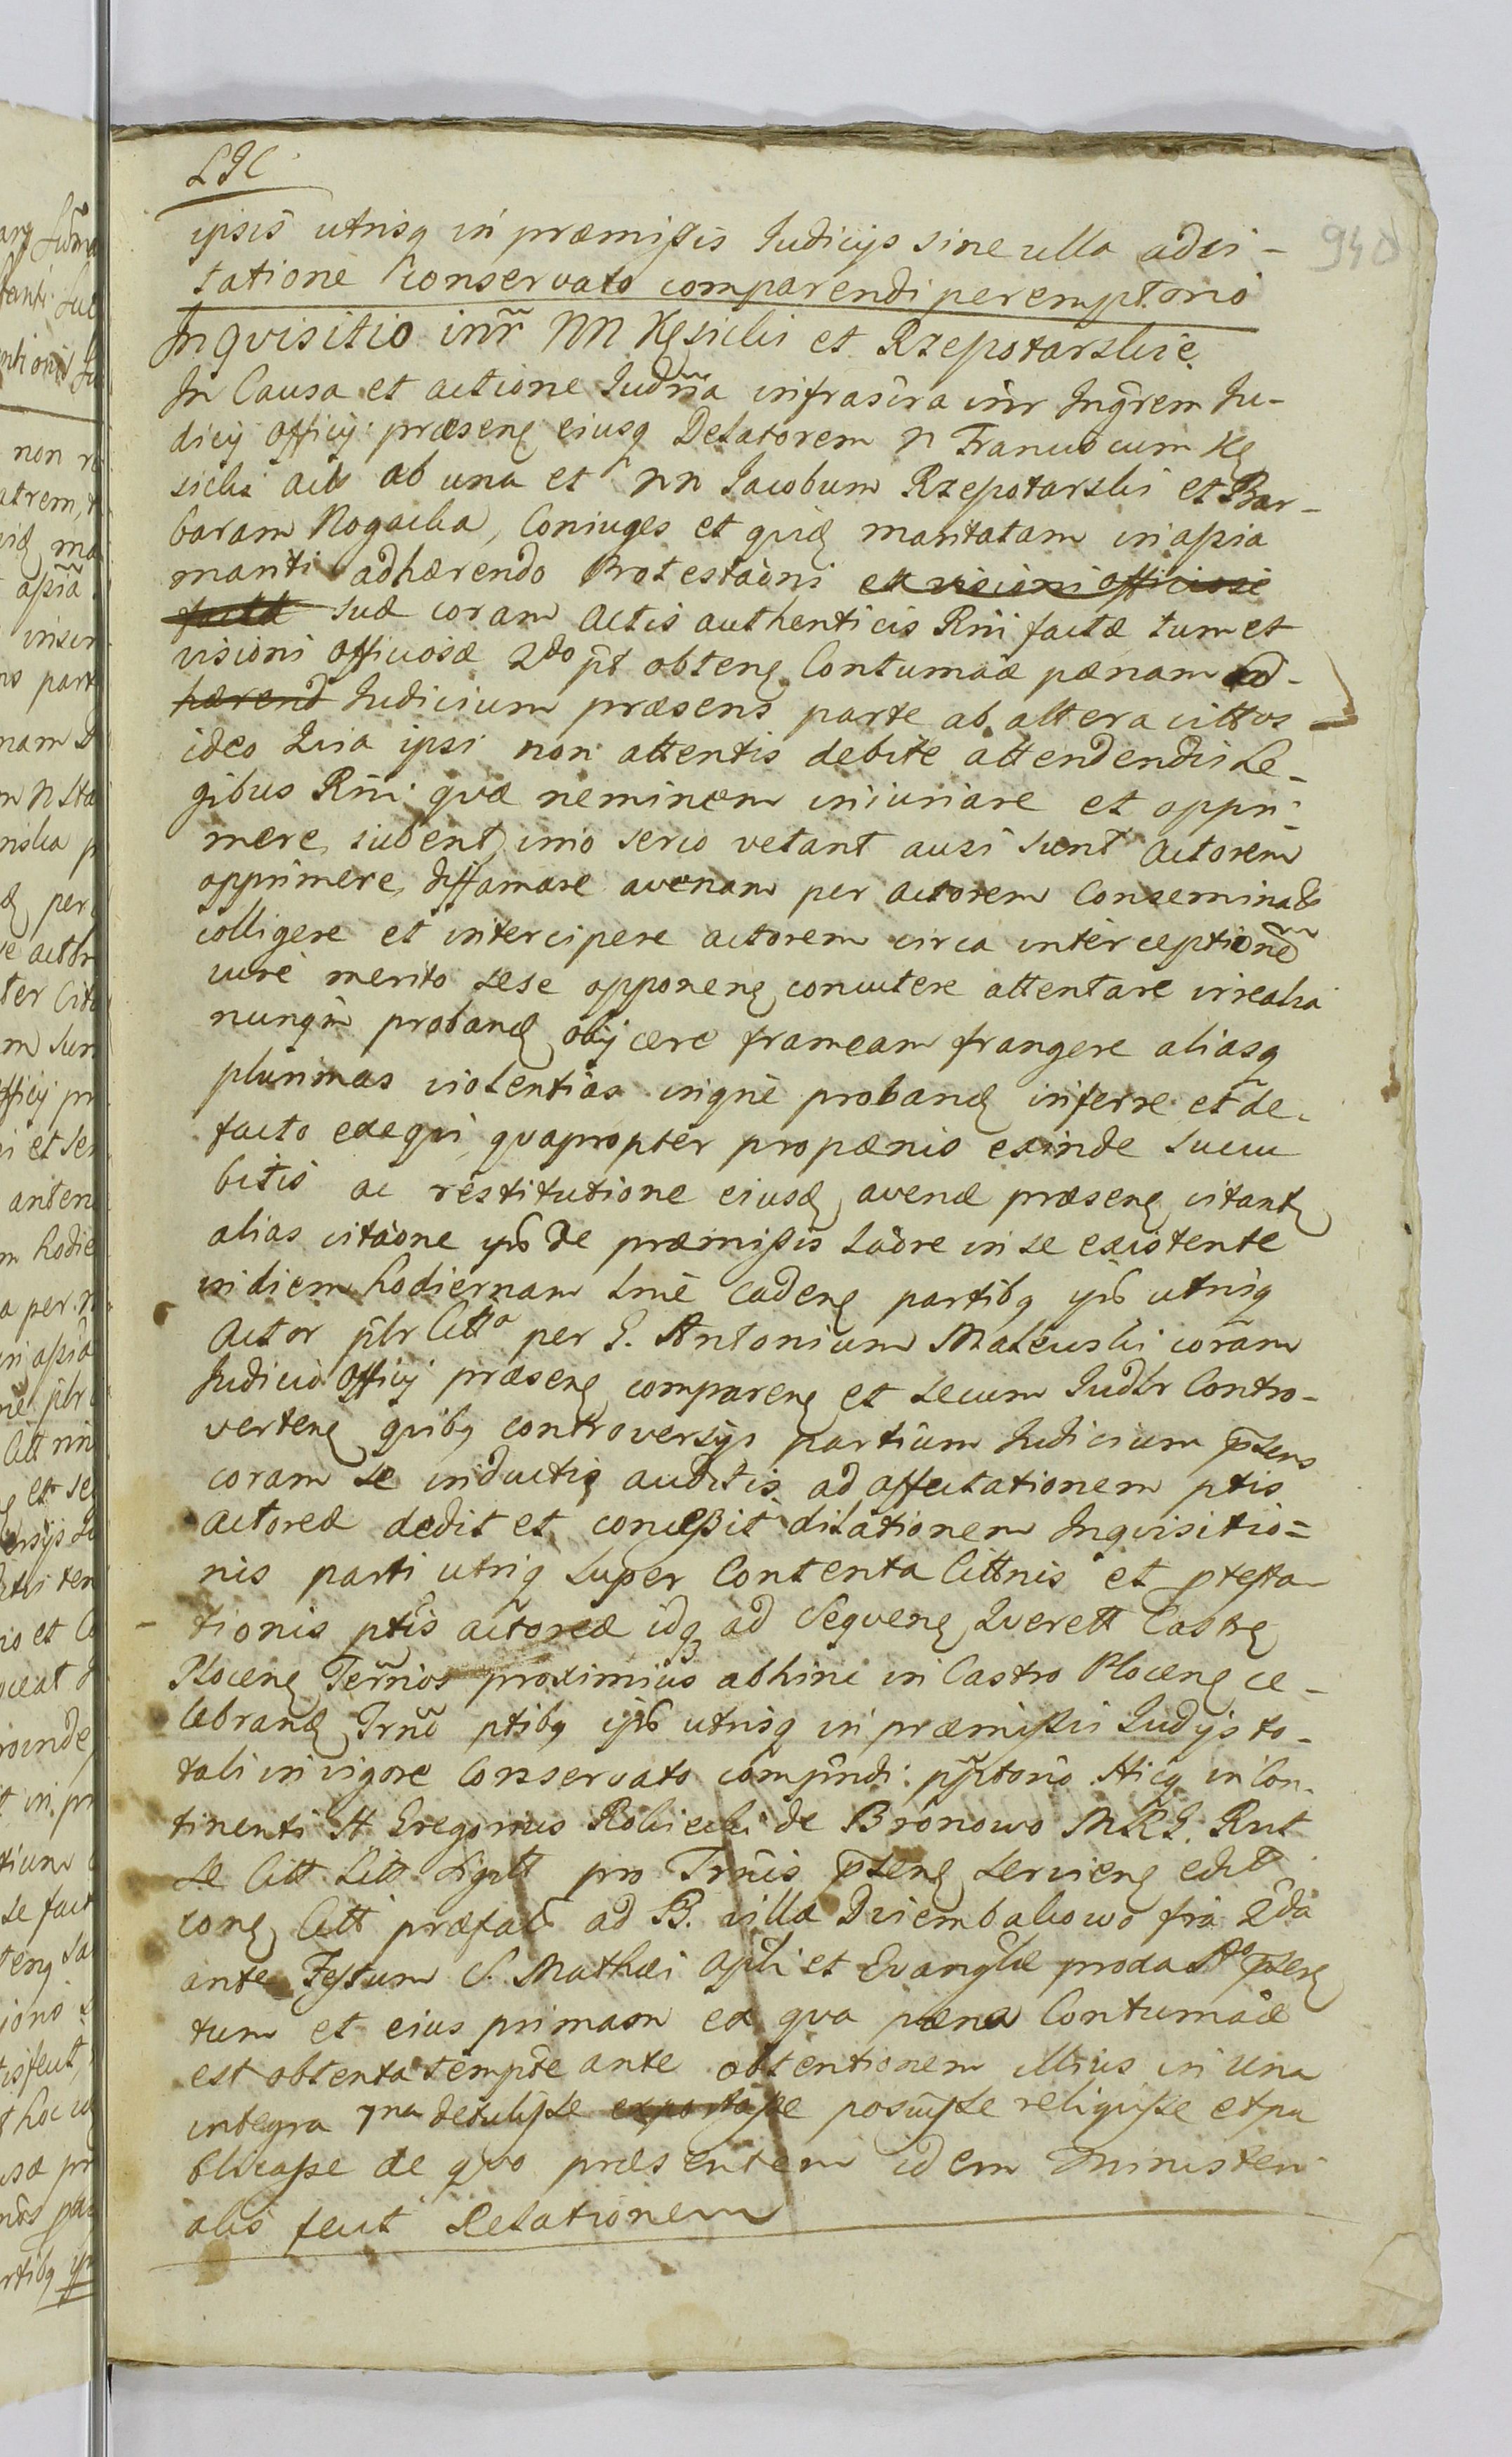 LIC
940
ipsis utrisq in præmißis Iudicijs sine ulla adci-
tatione Conservato comparendi peremptorio
Inqvisitio inr̃ NN Kęsicki et Rzepotarskie
In Causa et actione Iudr̃ia infrascra inr Ingrem Iu-
dicij officij præseng eiusq Delatorem N Franciscum Kę
sicki act ab una et NN Iacobum Rzepotarski et Bar-
baram Rogacka, Coniuges et qvid maritatam in aßia
mariti adhærendo Protestaõni ex visioni officiose
factæ suæ coram actis authenticis Rni factæ tum et
visioni officiosæ 2do pt obteng Contumaciæ pænam ad-
hærend Iudicium præsens parte ab altera cittos
ideo Qvia ipsi non attentis debite attendendis Le-
gibus Rni qvæ neminem iniuriare et oppri-
mere iubent imo serio vetant ausi sunt actorem
opprimere, diffamare avenam per actorem Conseminato
colligere et intercipere actorem circa interceptionẽ
iure merito sese opponeng concutere attentare irrealia
nunqm proband objicere frameam frangere aliasq
plurimas violentias inqne proband inferre et de
facto exeqvi qvapropter propænis exinde succu
bitis ac restitutione eiusd avenæ præseng citant
alias citaõne ipŏ de præmißis Laõre in se existente
in diem hodiernam Lme cadeng partibq ipŏ utriq
Actor plr Citto per G. Antonium Mateuski coram
Iudicio officij præseng compareng et secum Iudlr Contro-
verteng qvibq controversijs partium Iudicium p̃sens
coram se inductis auditis ad affectationem ptis
actoreæ dedit et conceßit dilationem Inqvisitio=
nis parti utriq super Contenta Cittnis et ptesta
tionis ptis actoreæ idq ad Seqveng Qverett Castrg
Ploceng Ter̃mos proximius abhinc in Castro Ploceng ce-
lebrand Tr̃no ptibq ipŏ utrisq in præmißis Iudijs to-
tali in vigore Conservato compr̃ndi pp̃tono Hicq in Con-
tinenti H Gregorius Robiecki de Bronowo MRG. Rnt
se Citt Litt Sigilt pro Tr̃mis p̃seng servieng edit
cong Citt præfat ad B. villæ Dziembakowo fria 2da
ante Festum S. Mathæi Apli et Evanglæ proxa Ao p̃seng
tum et eius primam ex qva pæna Contumaciæ
est obtenta tempre ante obtentionem illius in una
integra 7na detuliße exportaße posuiße reliqviße et pu
blicaße de qvo præsentem idem ministeri
alis fecit Relationem